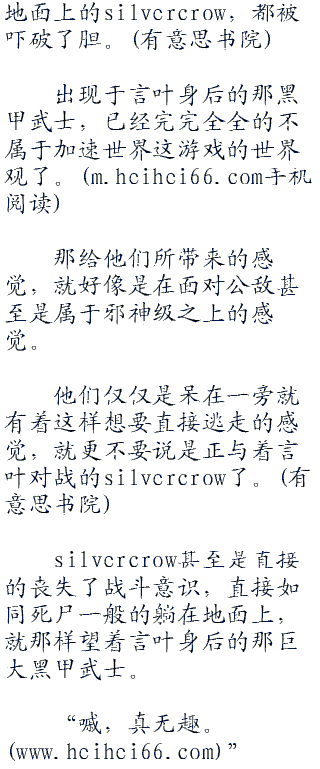 地面上的silvercrow，都被
吓破了胆。(有意思书院)
出现于言叶身后的那黑
甲武士，已经完完全全的不
属于加速世界这游戏的世界
观了。(m.hcihci66.com手机
阅读)
那给他们所带来的感
觉，就好像是在面对公敌甚
至是属于邪神级之上的感
觉。
他们仅仅是呆在一旁就
有着这样想要直接逃走的感
觉，就更不要说是正与着言
叶对战的silvercrow了。(有
意思书院)
silvercrow甚至是直接
的丧失了战斗意识，直接如
同死尸一般的躺在地面上，
就那样望着言叶身后的那巨
大黑甲武士。
“嘁，真无趣。
(www.hcihci66.com)”